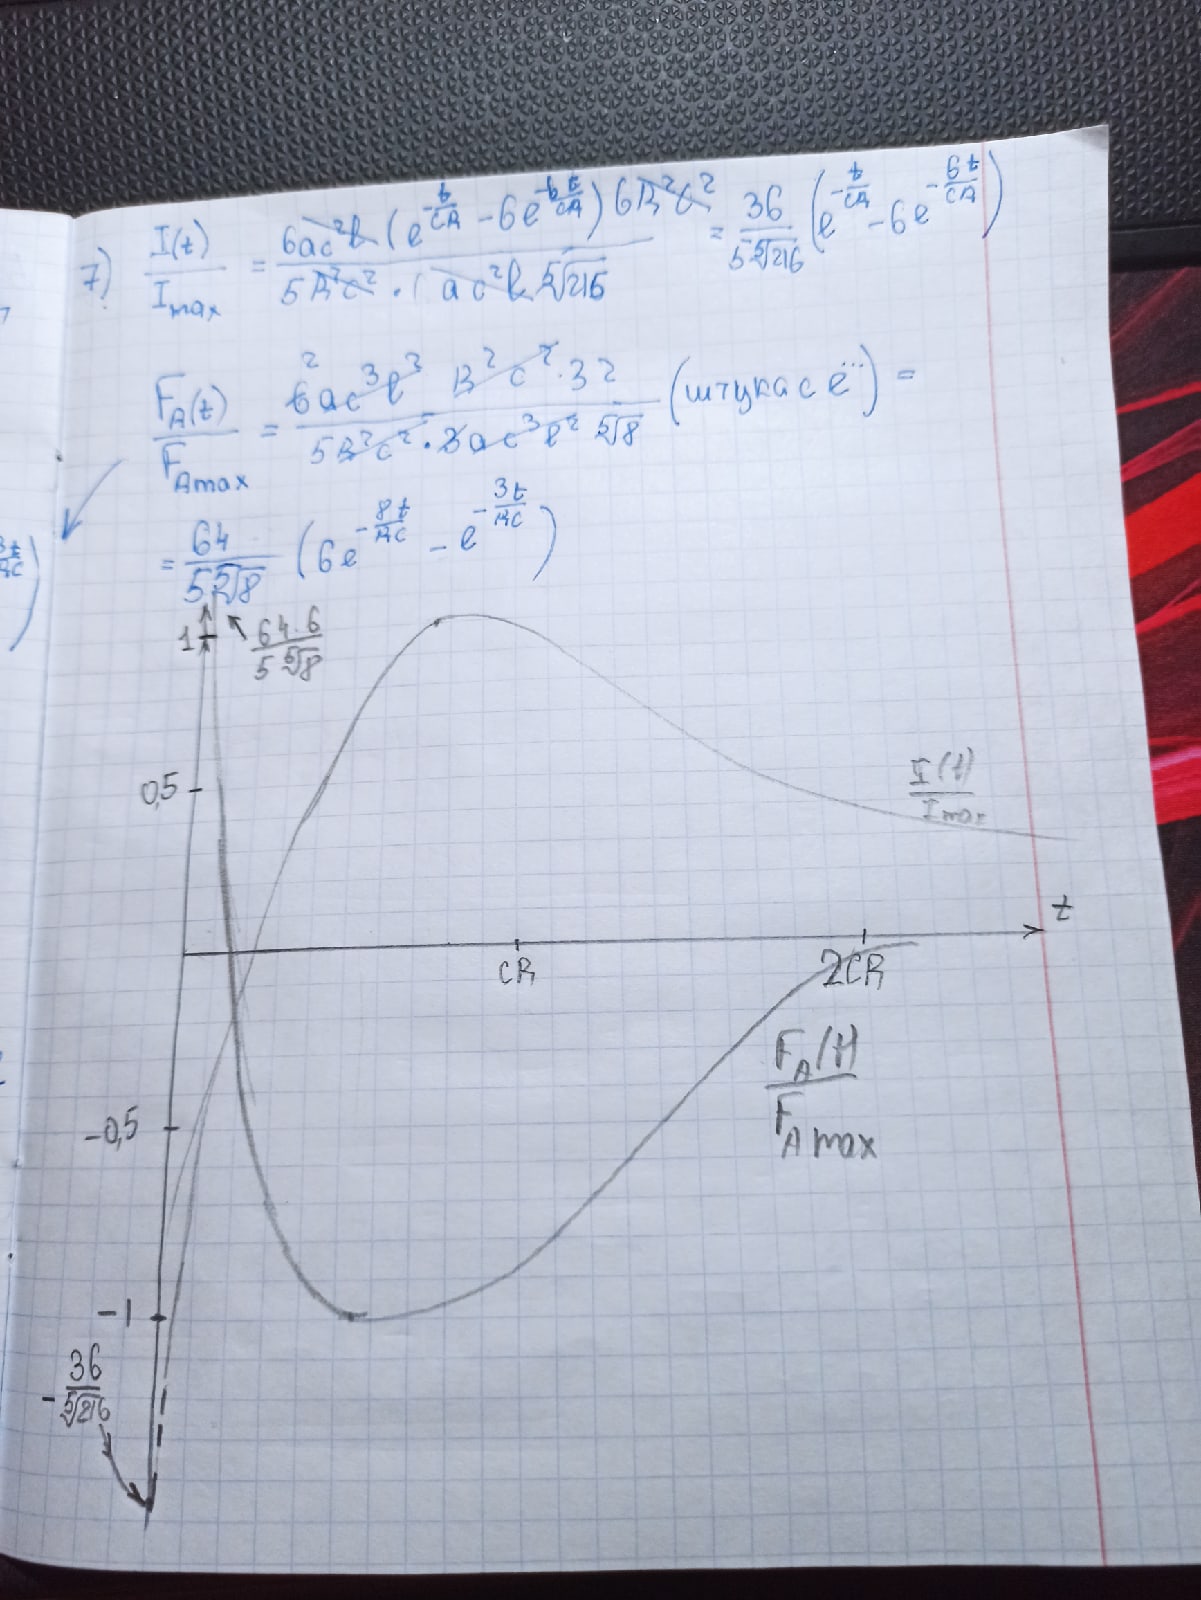 7) I(t)/I max = 6ac²l (e^(-t/CR) - 6e^(-6t/CR)) 6R²c² / 5R²c² · 1 ac²l ⁵√216 = 36/5⁵√216 (e^(-t/CR) - 6e^(-6t/CR))
F_A(t)/F_A max = 6² ac³l² R²c² · 32 / 5R²c² · 3ac³l² ⁵√8 (штука с e^...) =
= 64/5⁵√8 (6e^(-8t/RC) - e^(-3t/RC))
1
64·6/5⁵√8
0,5
I(t)/I max
t
CR
2CR
F_A(t)/F_A max
-0,5
-1
-36/⁵√216